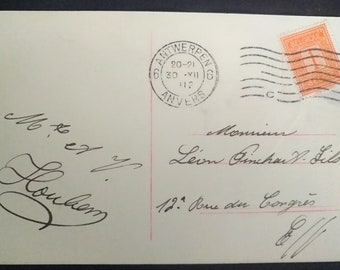 6 ANTWERPEN 6
20-21
30 XII
12
ANVERS
1
C
M. & A. V.
Houben
Monsieur
Léon Pinchart-Fils
12ª Rue du Congrès
E/V